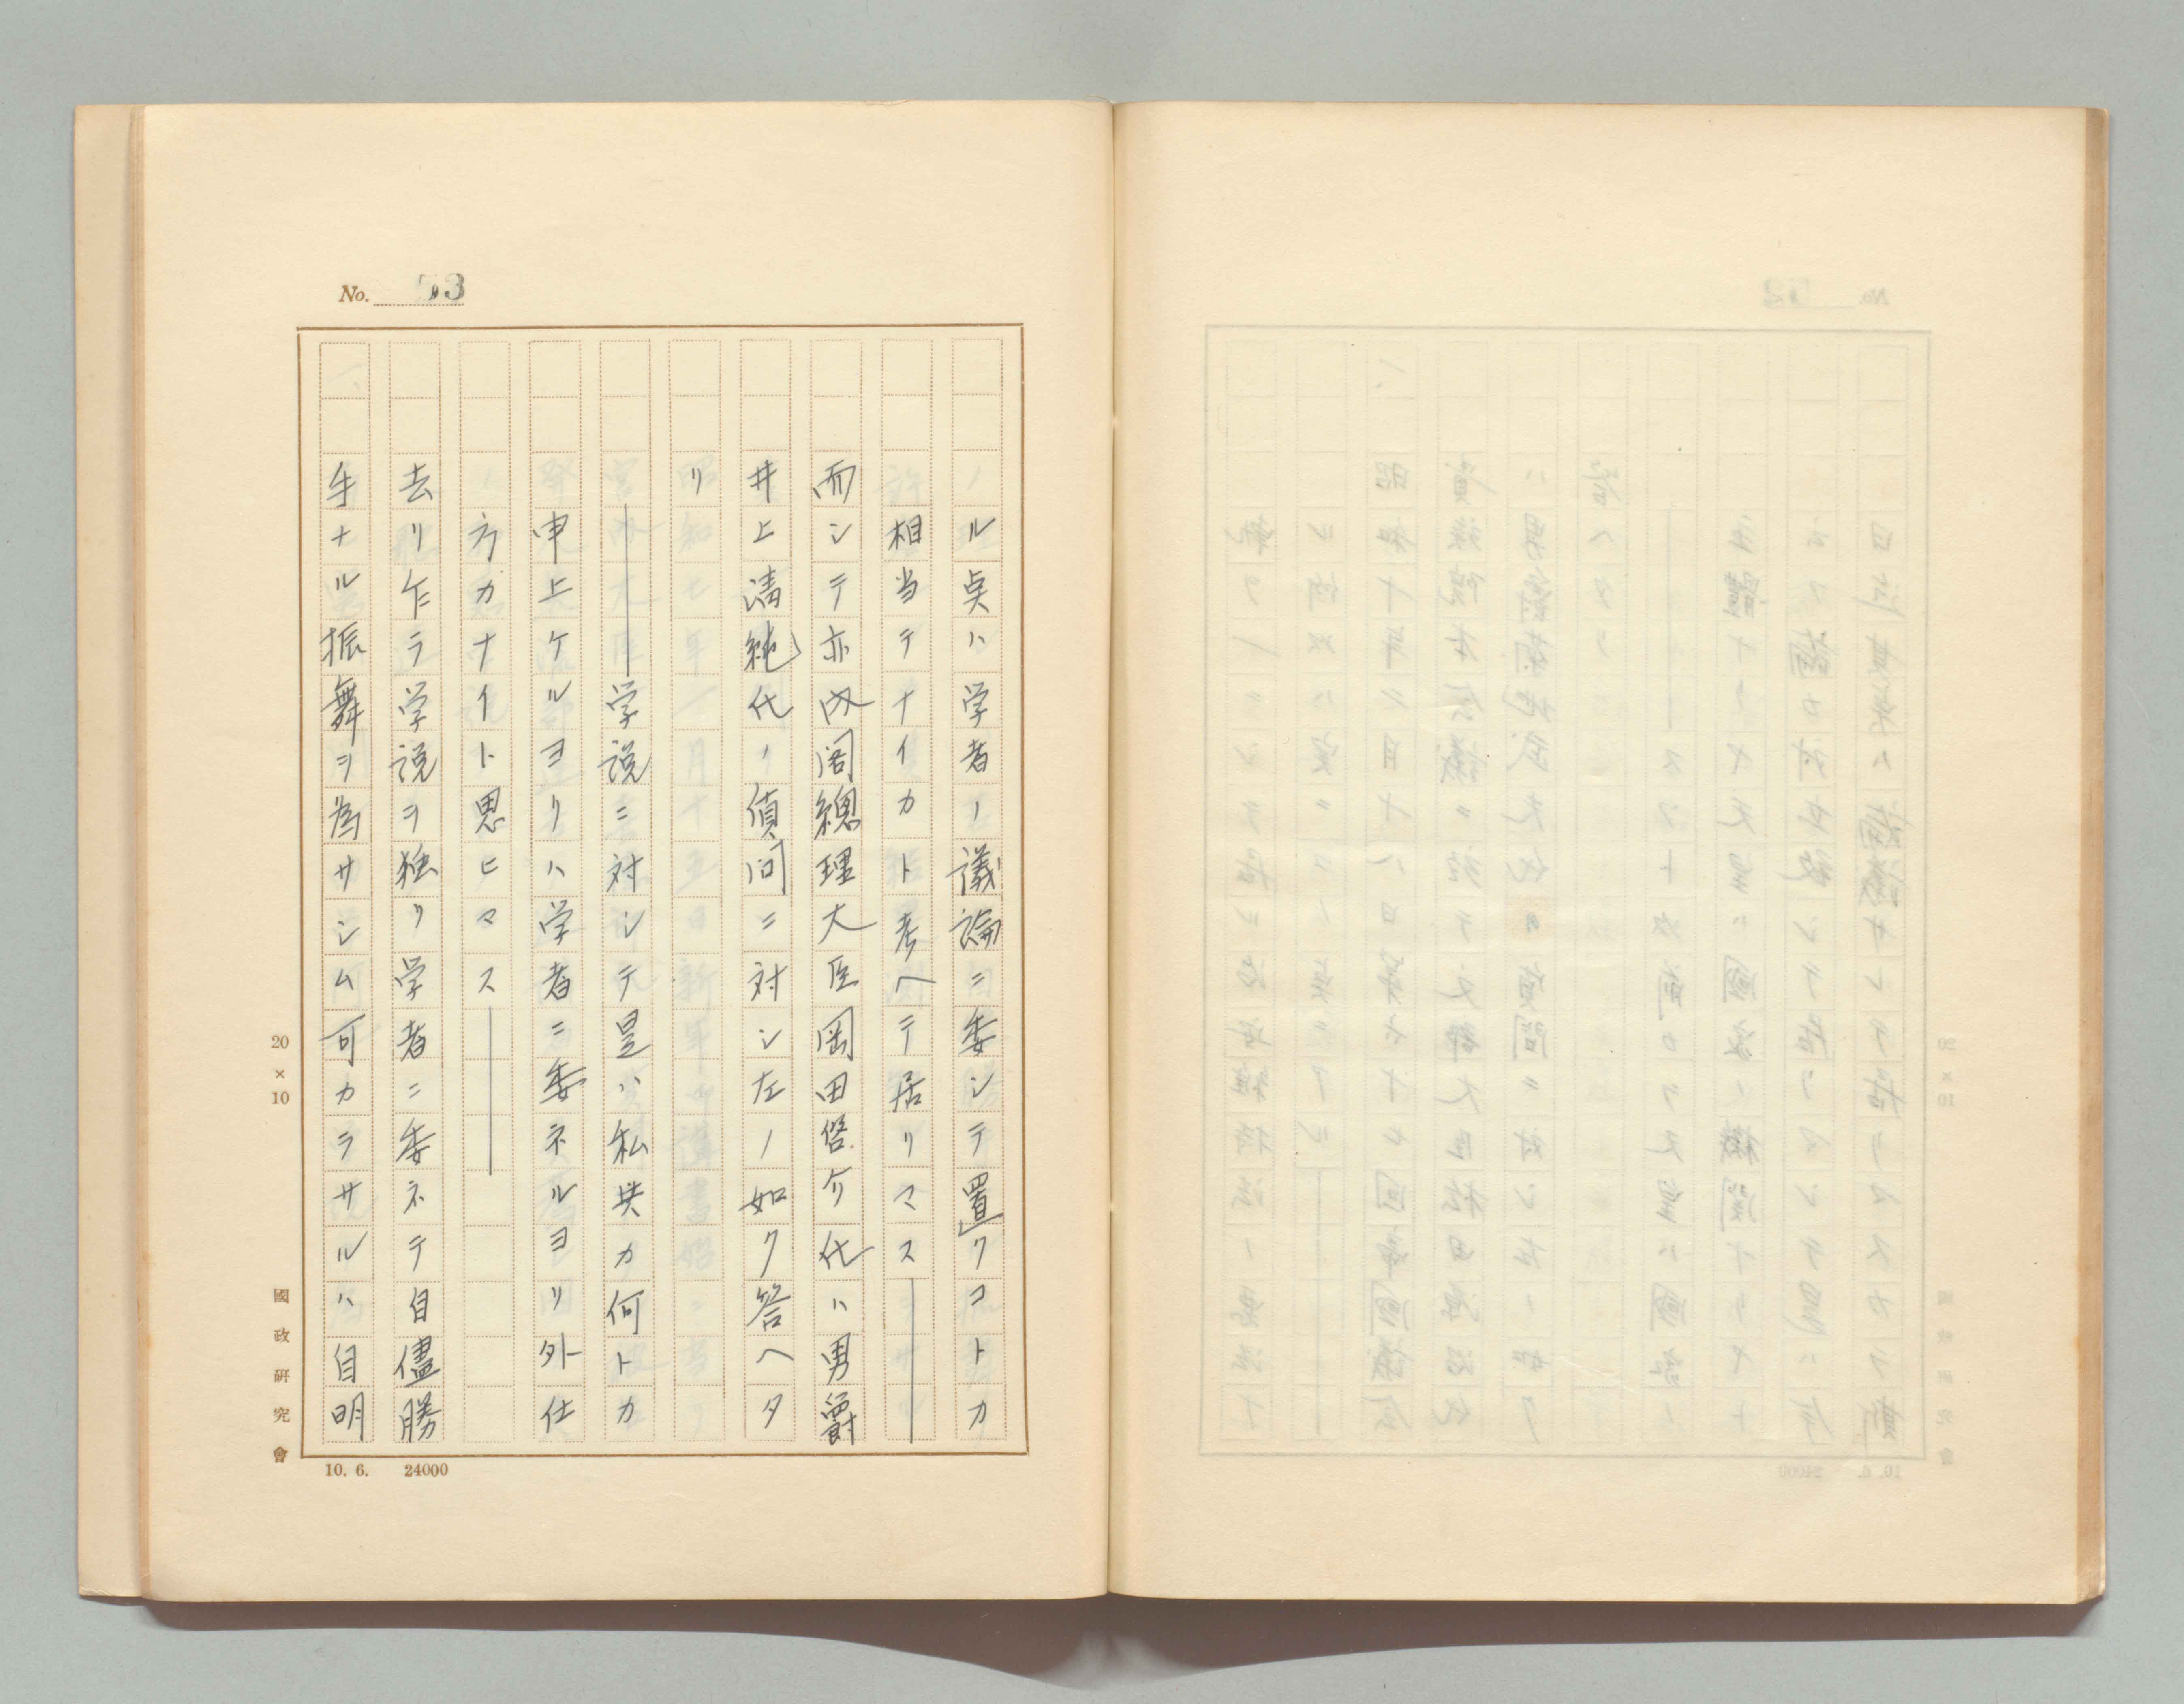 No. 53
ル点ハ学者ノ議論ニ委シテ置クコトカ
相当テナイカト考ヘテ居リマス━━━
而シテ亦内閣總理大臣岡田啓介氏ハ男爵
井上清純氏ノ質問ニ対シ左ノ如ク答ヘタ
リ
━━━学説ニ対シテ是ハ私共カ何トカ
申上ケルヨリハ学者ニ委ネルヨリ外仕
方カナイト思ヒマス━━━
去リ乍ラ学説ヲ独リ学者ニ委ネテ自儘勝
手ナル振舞ヲ為サシム可カラサルハ自明
20×10
國政研究會
10. 6. 24000